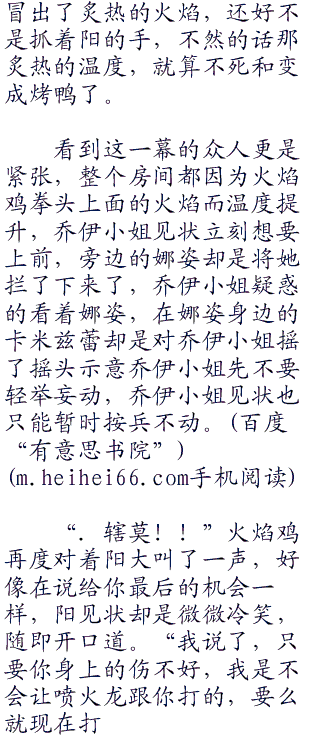 冒出了炙热的火焰，还好不
是抓着阳的手，不然的话那
炙热的温度，就算不死和变
成烤鸭了。
看到这一幕的众人更是
紧张，整个房间都因为火焰
鸡拳头上面的火焰而温度提
升，乔伊小姐见状立刻想要
上前，旁边的娜姿却是将她
拦了下来了，乔伊小姐疑惑
的看着娜姿，在娜姿身边的
卡米兹蕾却是对乔伊小姐摇
了摇头示意乔伊小姐先不要
轻举妄动，乔伊小姐见状也
只能暂时按兵不动。(百度
“有意思书院”)
(m.heihei66.com手机阅读)
“．辖莫！！”火焰鸡
再度对着阳大叫了一声，好
像在说给你最后的机会一
样，阳见状却是微微冷笑，
随即开口道。“我说了，只
要你身上的伤不好，我是不
会让喷火龙跟你打的，要么
就现在打